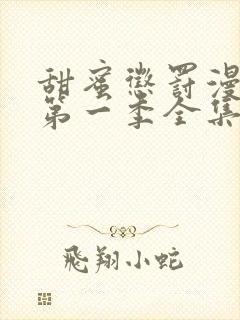 甜蜜懲罰漫
第一季全集
飛翔小蛇